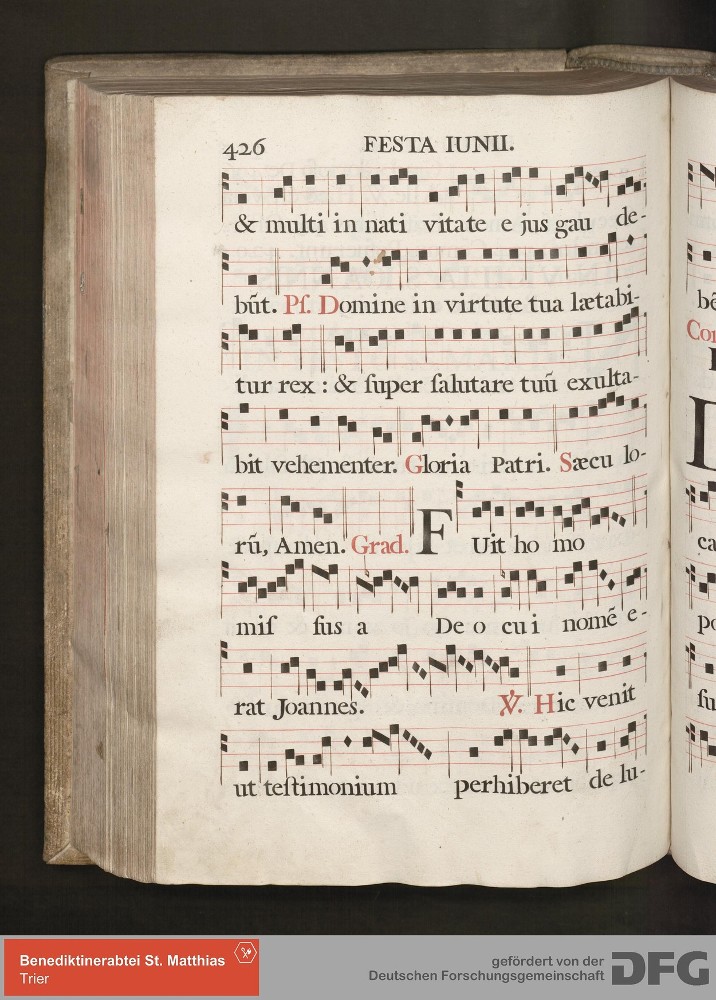 426 FESTA IUNII.
& multi in nati vitate e jus gau de-
būt. Pſ. Domine in virtute tua lætabi-
tur rex : & ſuper ſalutare tuū exulta-
bit vehementer. Gloria Patri. Sæcu lo-
rū, Amen. Grad. FUit ho mo
miſ ſus a De o cu i nomē e-
rat Joannes. ℣. Hic venit
ut teſtimonium perhiberet de lu-
bē
Con
D
ca
po
ſu
Benediktinerabtei St. Matthias
Trier
gefördert von der
Deutschen Forschungsgemeinschaft DFG